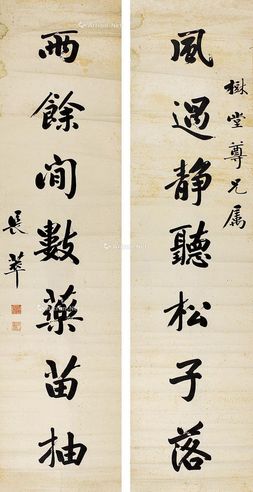 樹堂尊兄属
風過静聽松子落
雨餘閒數藥苗抽
長萃